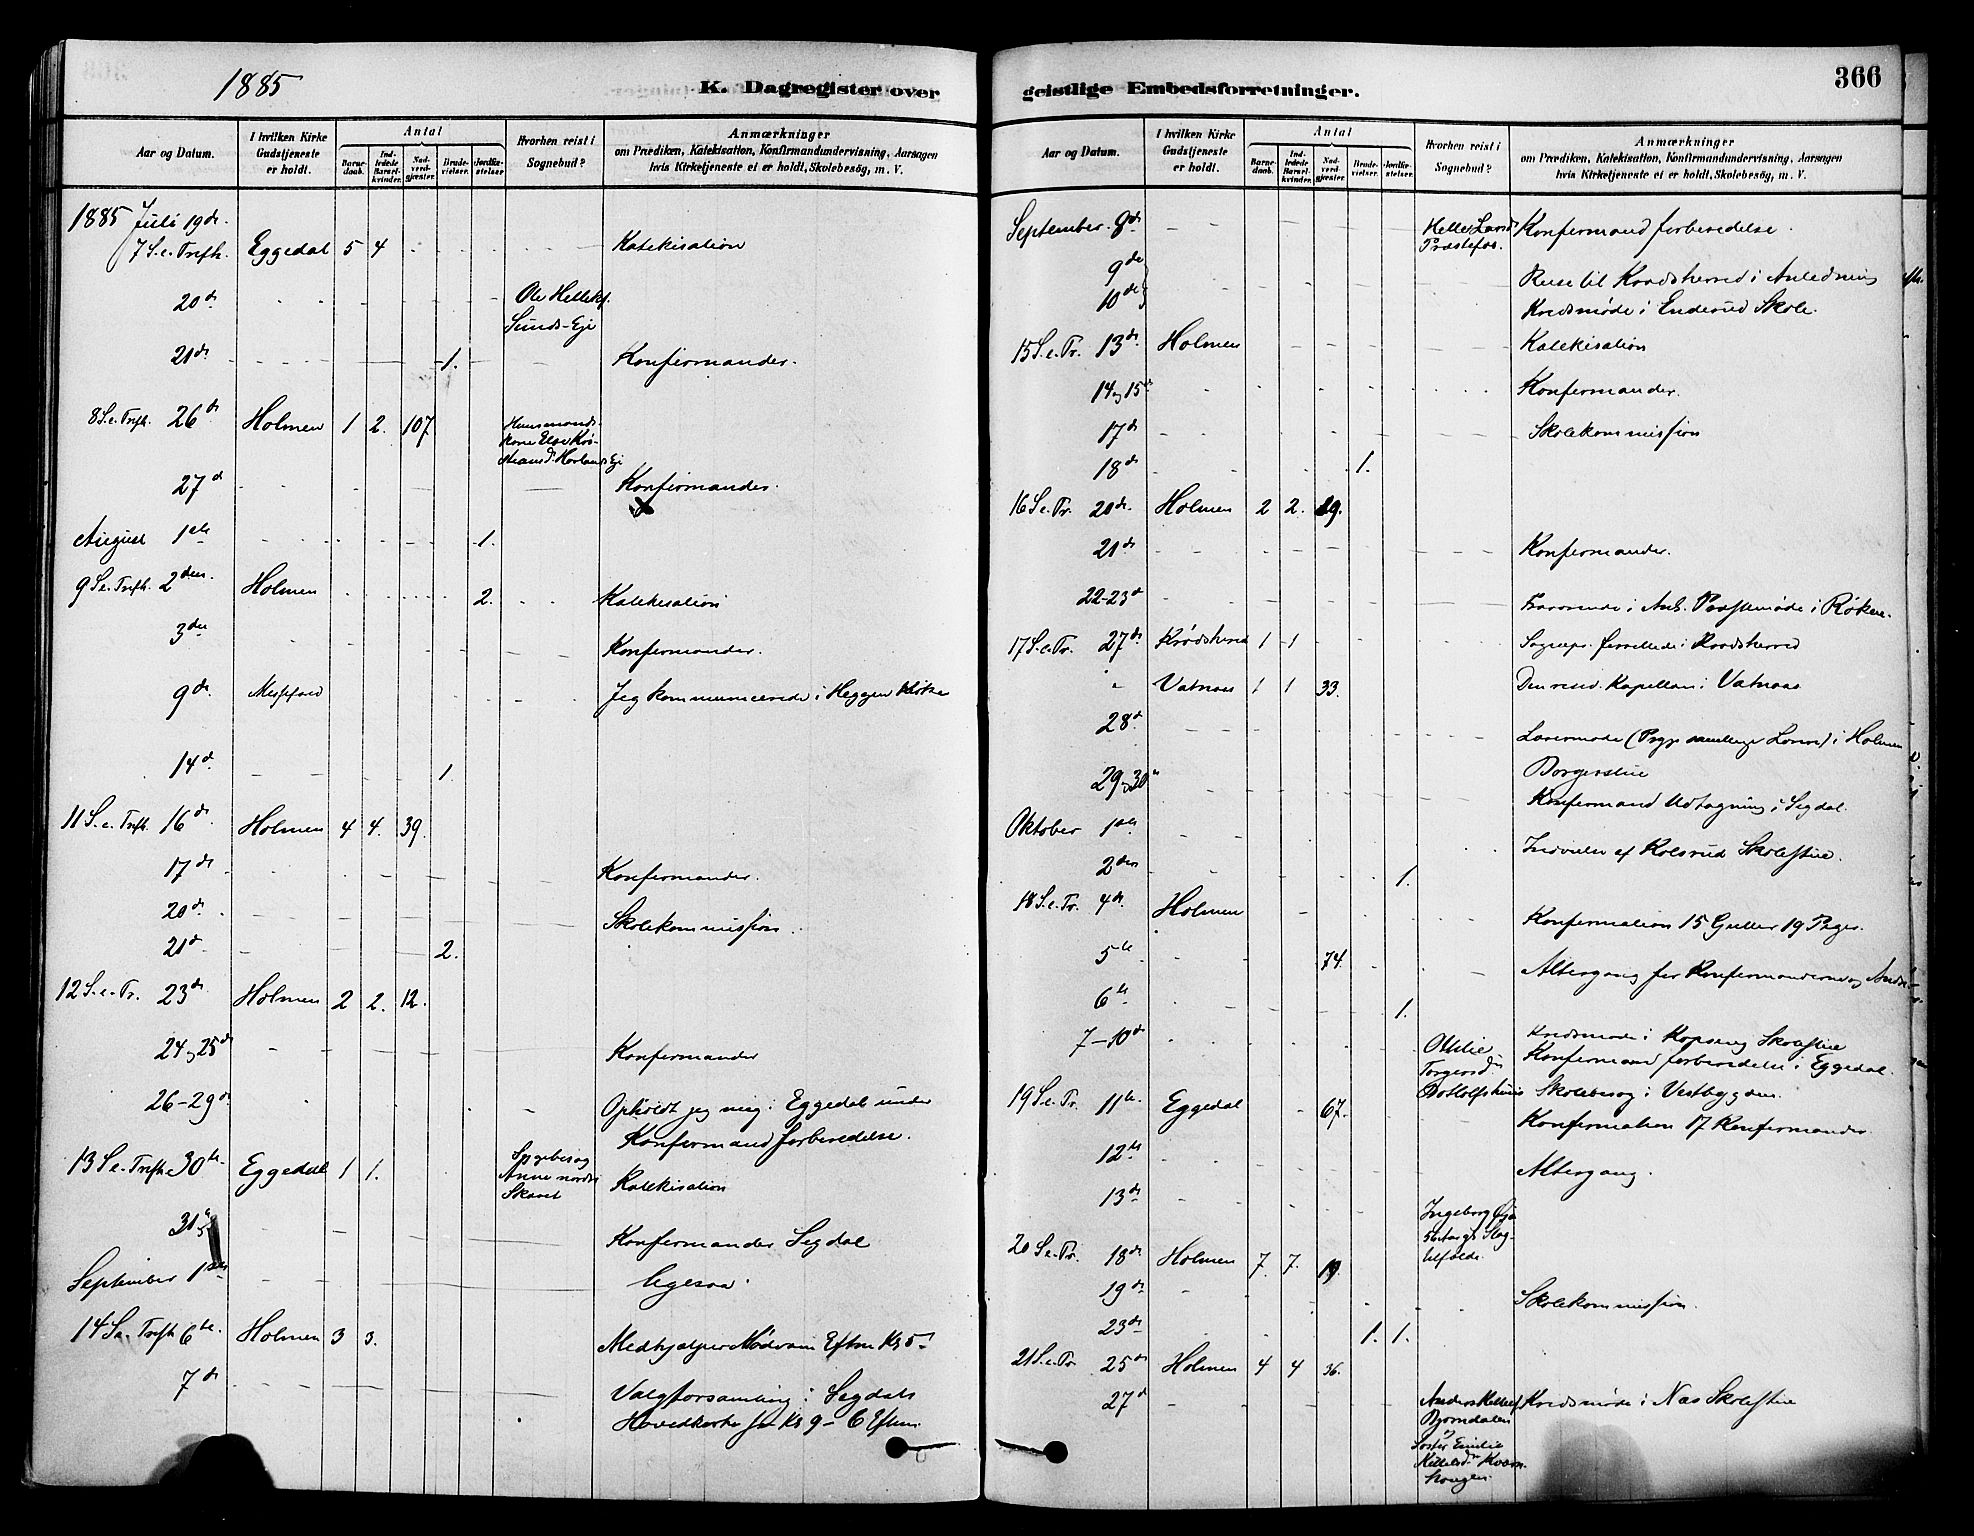 1885
K. Dagregister over
Aar og Datum.
I hvilken Kirke Gudstjeneste er holdt.
Antal
Barnedaab.
Indledede Barselkvinder.
Nadverdgjæster.
Brudevielser.
Jordfæstelser.
Hvorhen reist i Sognebud?
Anmærkninger
om Prædiken, Katekisation, Konfirmandundervisning, Aarsagen
hvis Kirketjeneste ei er holdt, Skolebesøg, m. V.
1885 Juli 19de
7 S. e. Trefh. Eggedal 5 4 Katekisation
20d Ole Helleks.
Sunds-Eje
21de 1. Konfirmander.
8 S. e. Trefh. 26d Holmen 1 2. 107.
27d Konfirmander.
August 1ste 1.
9 S. e. Trefh. 2den Holmen 2. Katekisation
3die Konfirmander.
9de Messefald Jeg kommunicerede i Heggen Kirke
14d 1.
11 S. e. Trefh. 16de Holmen 4 4. 39.
17de Konfirmander.
20de Skolekommission
21d 2.
12 S. e. Tr. 23de Holmen 2 2. 12.
24 og 25de Konfirmander
26-29de Opholdt jeg mig i Eggedal under
Konfirmandforberedelse.
13 S. e. Trefh. 30te Eggedal 1 1. Sygebesøg
Anne nordre
Skaret Katekisation
31te Konfirmander Sigdal
September 1ste ligesaa.
14 S. e. Trefh 6te Holmen 3 3. Medhjælper Eftm Kl 5
7de Valgforsamling i Sigdals
Hovedkirke fra Kl 9 - 6 Eftm.
geistlige Embedsforretninger.
366
Aar og Datum.
I hvilken Kirke Gudstjeneste er holdt.
Antal
Barnedaab.
Indledede Barselkvinder.
Nadverdgjæster.
Brudevielser.
Jordfæstelser.
Hvorhen reist i Sognebud?
Anmærkninger
om Prædiken, Katekisation, Konfirmandundervisning, Aarsagen
hvis Kirketjeneste ei er holdt, Skolebesøg, m. V.
September 8de Præstefos. Konfirmandforberedelse.
9de
10de Reise til Krødsherred i Anledning
Kredsmøde i Enderud Skole.
15 S. e. Tr. 13de Holmen Katekisation
14 og 15de Konfirmander.
17de Skolekommission
18de 1.
16 S. e. Tr. 20de Holmen 2 2. 29.
21de Konfirmander.
22-23de Fraværende i Anl. Præstemøde i Røken
17 S. e. Tr. 27de Krødsherred 1 1 Sognepr. forrettede i Krødsherred
Vatnaas 1 1 33. Den resid. Kapellan i Vatnaas
28de Lærermøde i Holmen
29 og 30te Borgerstue
Konfirmand Udtagning i Sigdal.
Oktober 1ste Indvielse af Kolsrud Skolestue.
2den 1.
18 S. e. Tr. 4de Holmen Konfirmation 15 Gutter 19 Piger.
5te 74. Altergang for Konfirmanderne og Andre
6te 1. Kredsmøde i Skolestue
7-10de Othilie
Torgersdr
Bottolfshuus Konfirmandforberedelse i Eggedal.
Skolebesøg i Vestbygden.
19 S. e. Tr. 11te Eggedal 67. Konfirmation 17 Konfirmander.
12te Altergang.
13de Ingeborg
20 S. e. Tr. 18de Holmen 7. 7. 19.
19de Skolekommission.
23de 1. 1.
21 S. e. Tr 25de Holmen 4 4 36.
27de Anders
Bjørndalen
Søster Emilie Kredsmøde i Næs Skolestue